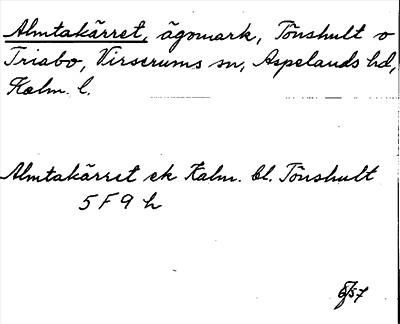 Almtakärret, ägomark, Tönshult o
Triabo, Virserums sn, Aspelands hd,
Kalm. l.
Almtakärret ek Kalm. bl. Tönshult
5 F 9 h